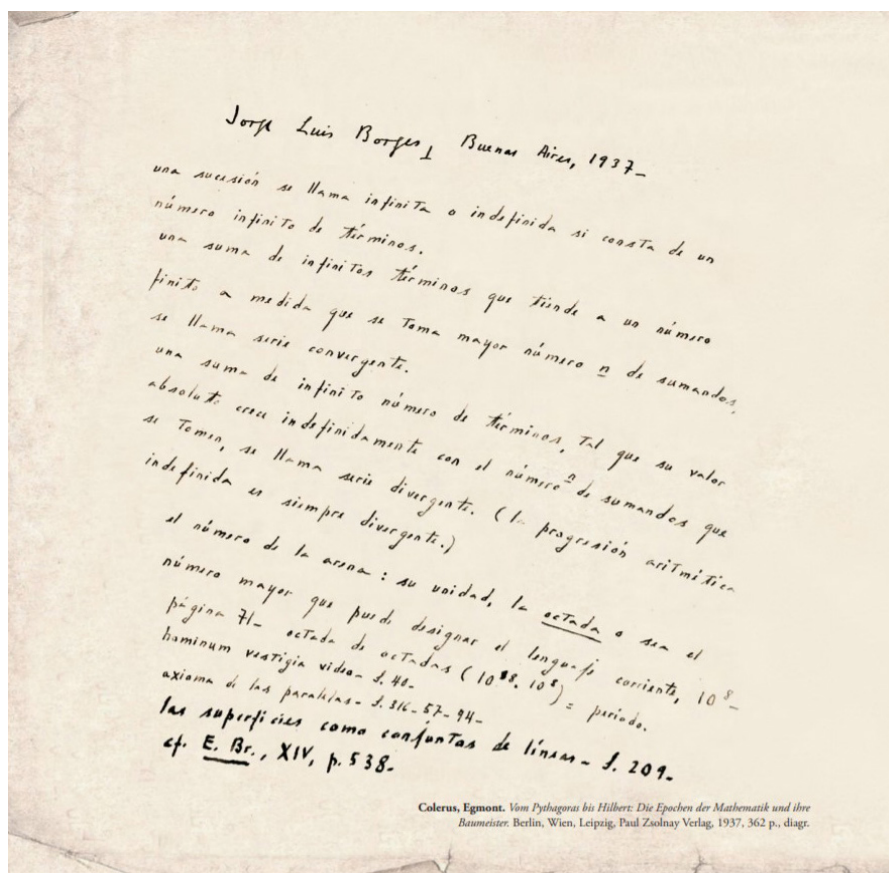 Jorge Luis Borges, Buenos Aires, 1937_
una sucesión se llama infinita o indefinida si consta de un
número infinito de términos.
una suma de infinitos términos que tiende a un número
finito a medida que se toma mayor número n de sumandos,
se llama serie convergente.
una suma de infinito número de términos, tal que su valor
absoluto crece indefinidamente con el número n de sumandos que
se tomen, se llama serie divergente. (la progresión aritmética
indefinida es siempre divergente.)
el número de la arena: su unidad, la octada o sea el
número mayor que puede designar el lenguaje corriente, 10⁸_
página 71_ octada de octadas (10⁸·10⁸) = período.
hominum vestigia video_ S. 40_
axioma de las paralelas_ S. 316_57_94_
las superficies como conjuntos de líneas_ S. 209_
cf. E. Br., XIV, p. 538_
Colerus, Egmont. Vom Pythagoras bis Hilbert: Die Epochen der Mathematik und ihre
Baumeister. Berlin, Wien, Leipzig, Paul Zsolnay Verlag, 1937, 362 p., diagr.